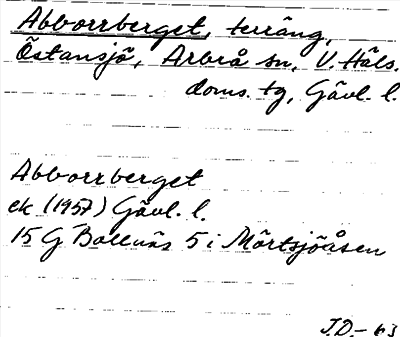 Abborrberget, terräng,
Östansjö, Arbrå sn, V. Häls.
doms. tg, Gävl. l.
Abborrberget
ek (1957) Gävl. l.
15 G Bollnäs 5 i Mörtsjöåsen
J.D. - 63